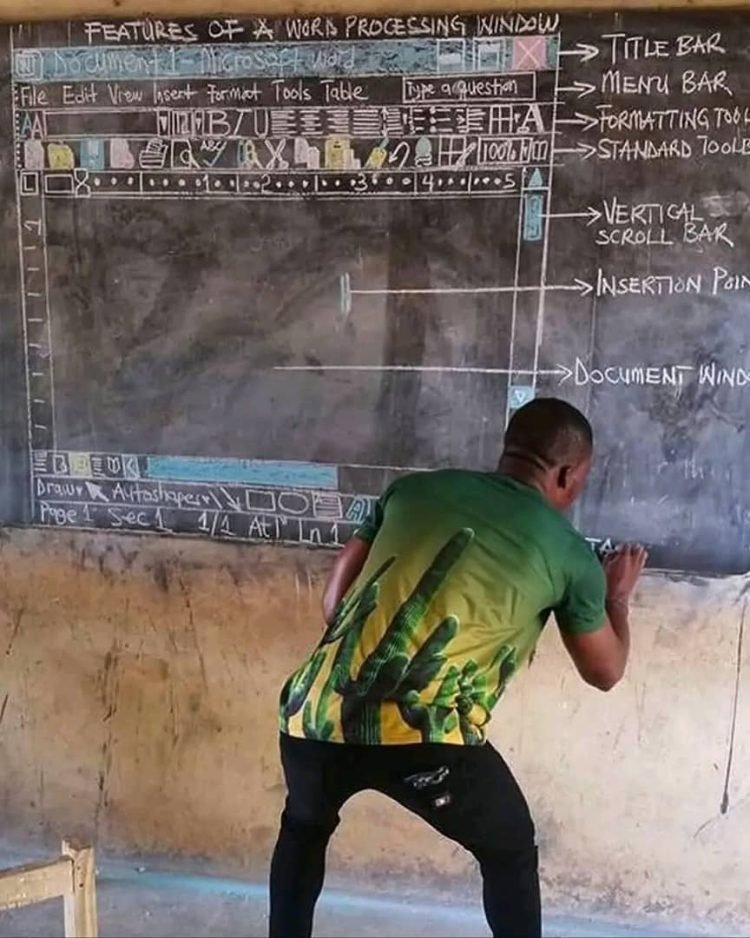 FEATURES OF A WORD PROCESSING WINDOW
Document 1 - Microsoft Word
TITLE BAR
File Edit View Insert Format Tools Table
Type a question
MENU BAR
AA
12
B I U
A
FORMATTING TOOL
ABC
100%
STANDARD TOOLB
L
1 2 3 4 5
VERTICAL
SCROLL BAR
INSERTION POIN
DOCUMENT WINDO
Draw Autoshapes
A
Page 1 Sec 1 1/1 At 1" Ln 1
TA